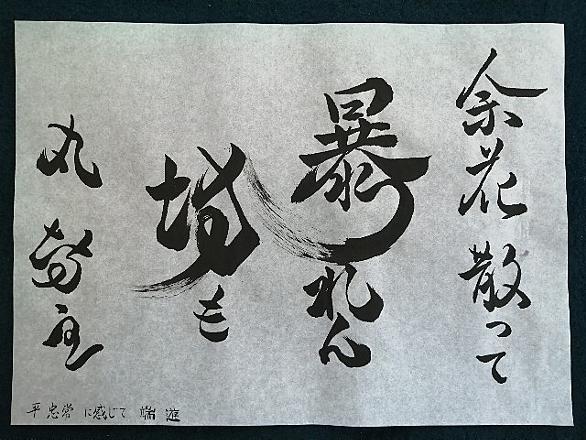 余花散って
暴れん
坊も
丸坊主
平忠常に感じて 遊